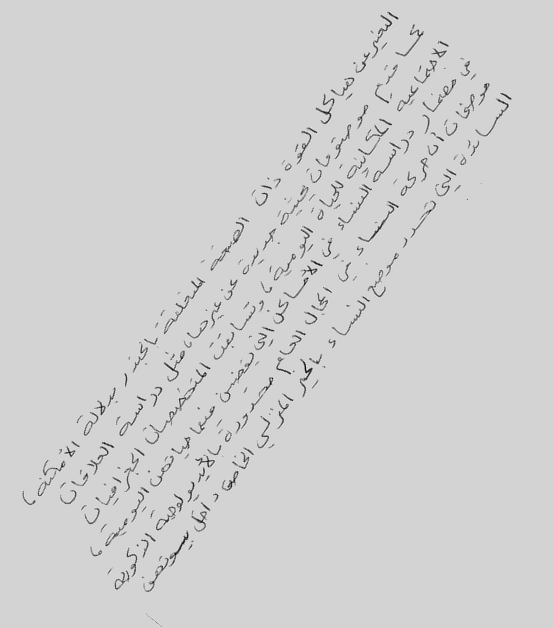 التعبير عن هياكل القوة ذات الصبغة المتعلقة بالجندر بدلالة الأمكنة،
كما قدم موضوعات بحثية جديدة عن غيرها، مثل دراسة العلاقات
الاجتماعية المكانية للحياة اليومية، وتسابقت المتخصصات الجغرافيات
في مضمار دراسة النساء في الأماكن التي يقضين فيها حياتهن اليومية،
موضحات أن حركة النساء في المجال العام محدودة بالأيديولوجية الذكورية
السائدة التي تحدد موضع النساء بالحيز المنزلي الخاص داخل بيوتهن